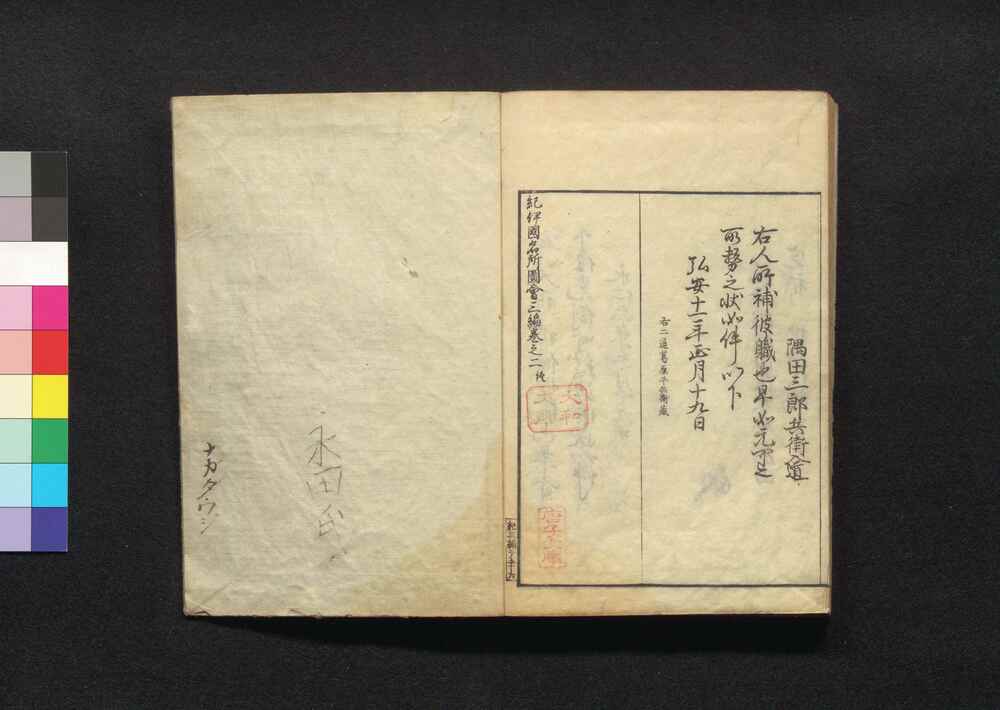 隅田三郎兵衛入道
右人所補彼職也早如元可之
所勢之状如件以下
弘安十一年正月十九日
右二通葛原平兵衛蔵
紀伊國名所圖會三編巻之二終
紀三編
永田氏
ナガタウシ